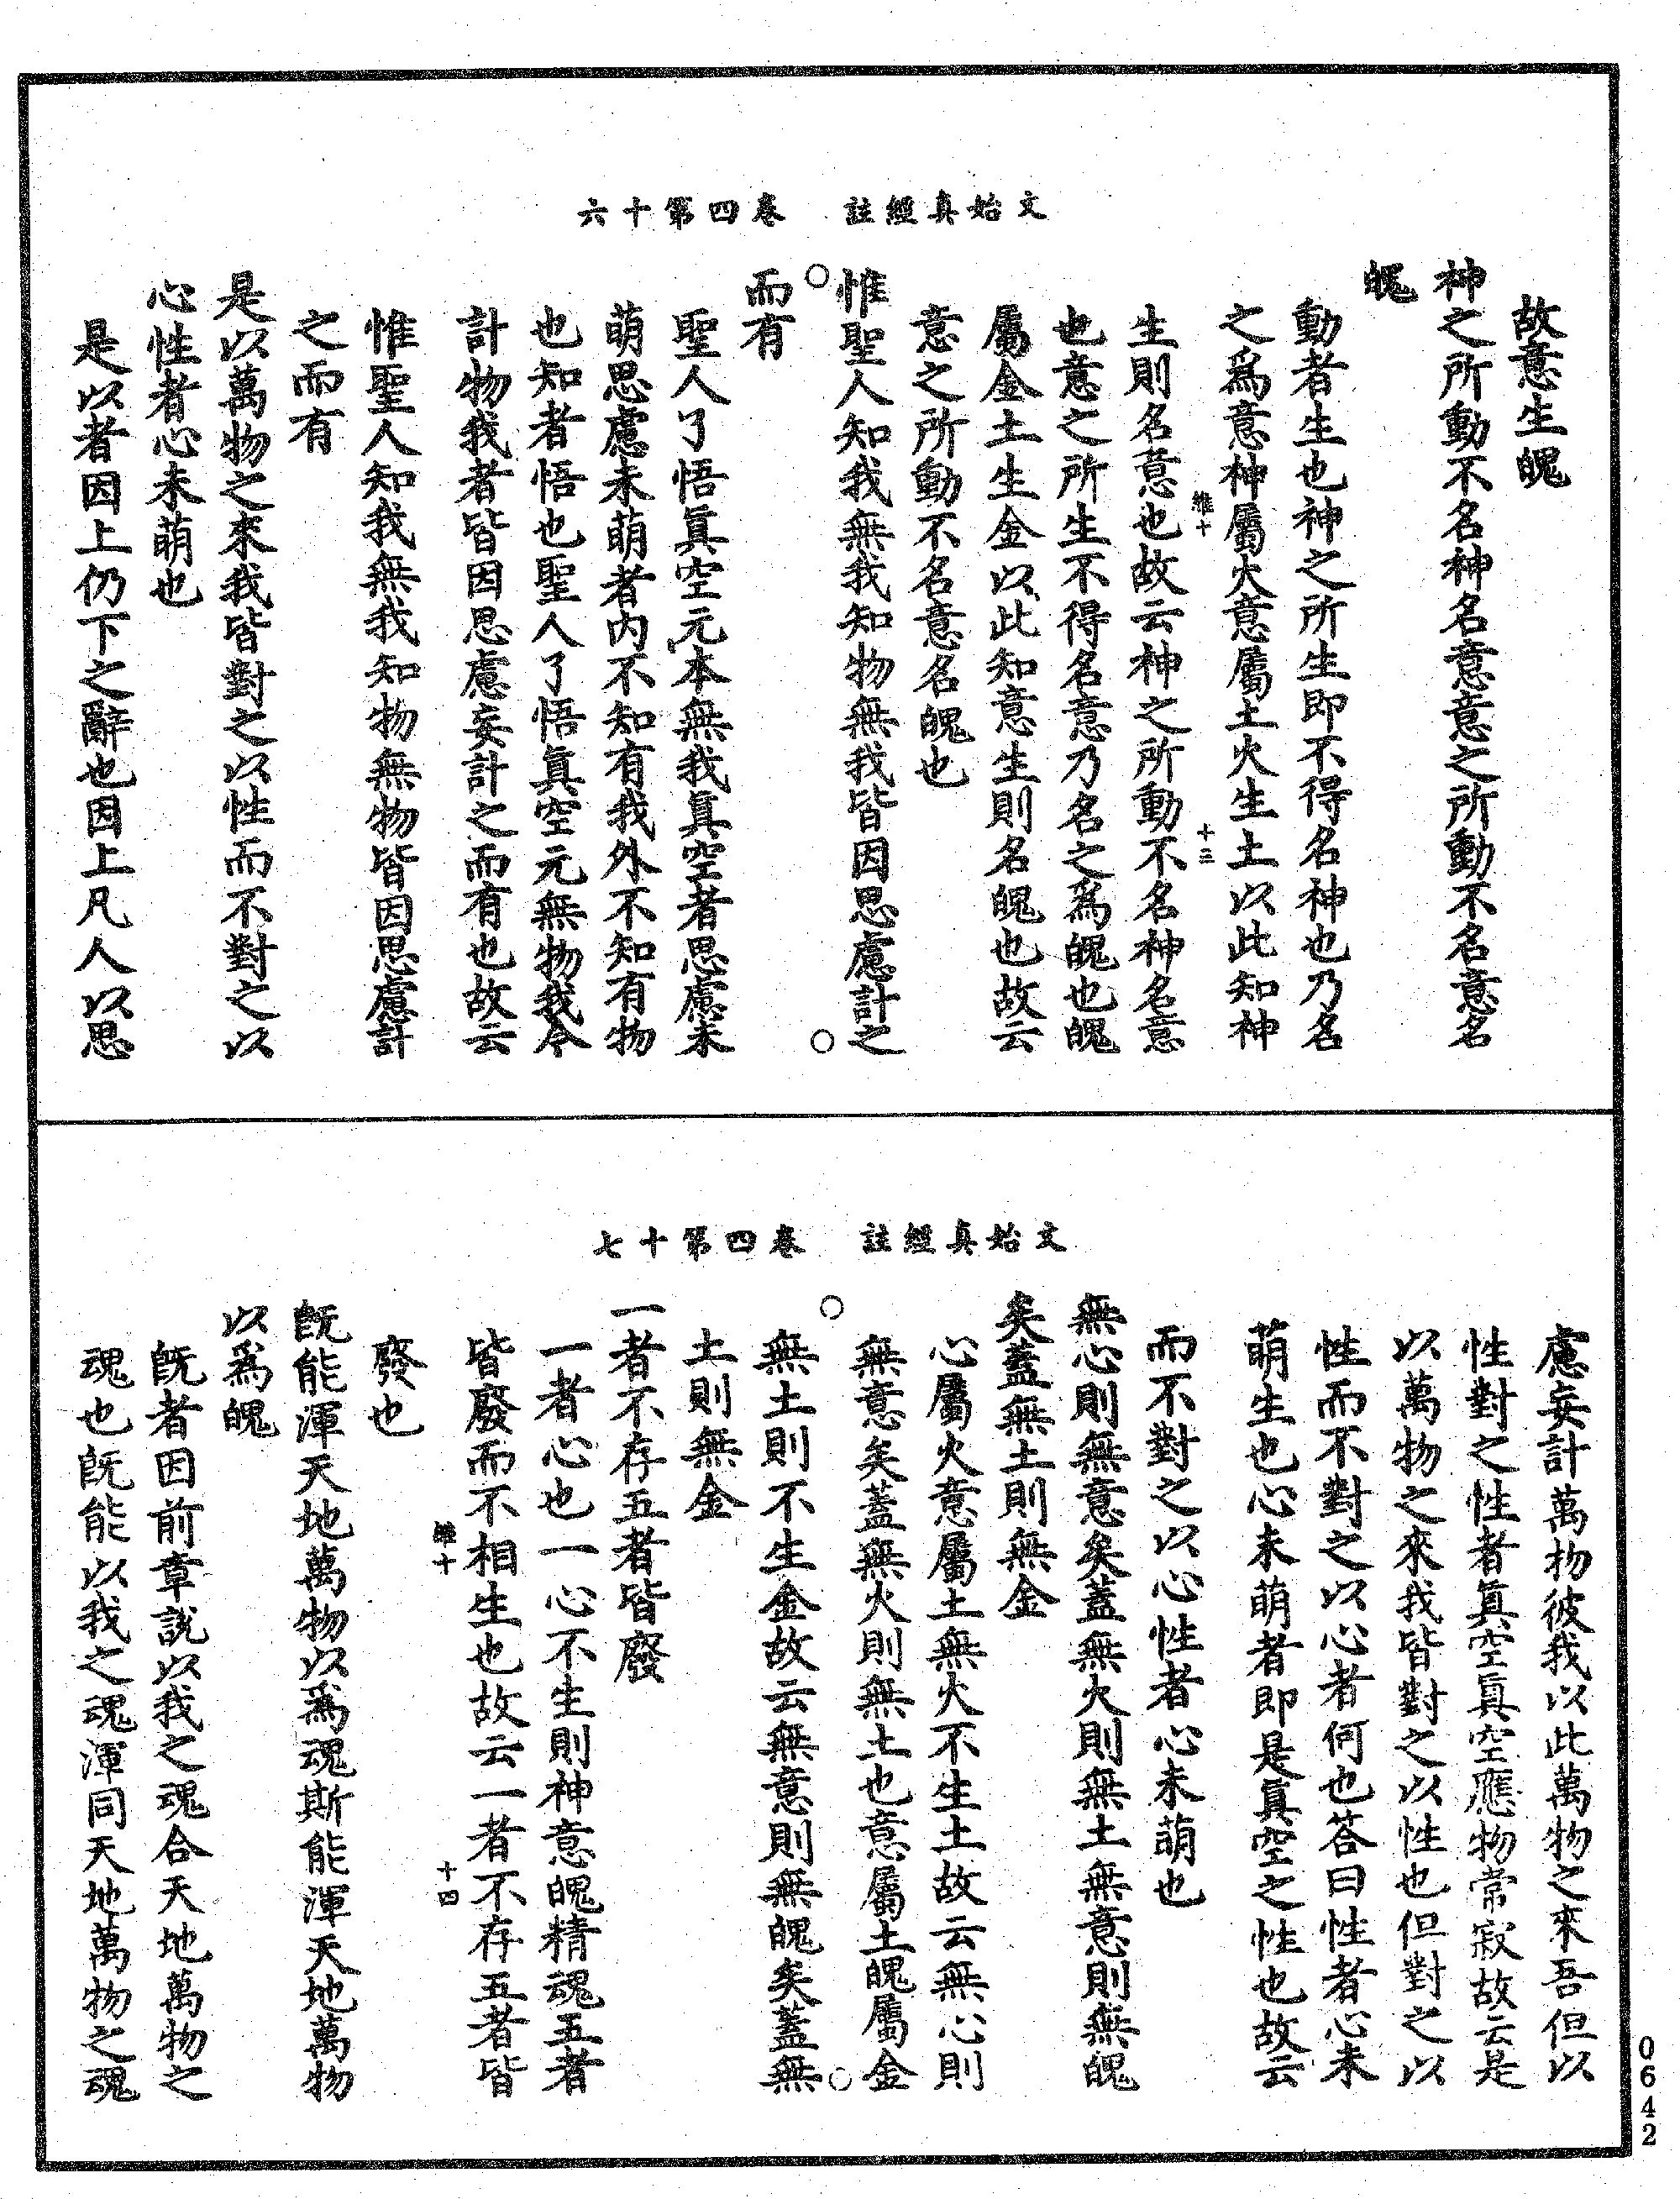 文始真經註　卷四第十六
故意生魄
神之所動不名神名意意之所動不名意名
魄
動者生也神之所生即不得名神也乃名
之爲意神屬火意屬土火生土以此知神
維十　十三
生則名意也故云神之所動不名神名意
也意之所生不得名意乃名之爲魄也魄
屬金土生金以此知意生則名魄也故云
意之所動不名意名魄也
惟聖人知我無我知物無我皆因思慮計之
○　○
而有
聖人了悟真空元本無我真空者思慮未
萌思慮未萌者内不知有我外不知有物
也知者悟也聖人了悟真空元無物我今
計物我者皆因思慮妄計之而有也故云
惟聖人知我無我知物無物皆因思慮計
之而有
是以萬物之來我皆對之以性而不對之以
心性者心未萌也
是以者因上仍下之辭也因上凡人以思
文始真經註　卷四第十七
慮妄計萬物彼我以此萬物之來吾但以
性對之性者真空真空應物常寂故云是
以萬物之來我皆對之以性也但對之以
性而不對之以心者何也答曰性者心未
萌生也心未萌者即是真空之性也故云
而不對之以心性者心未萌也
無心則無意矣蓋無火則無土無意則無魄
矣蓋無土則無金
心屬火意屬土無火不生土故云無心則
無意矣蓋無火則無土也意屬土魄屬金
○　○
無土則不生金故云無意則無魄矣蓋無
土則無金
一者不存五者皆廢
一者心也一心不生則神意魄精魂五者
皆廢而不相生也故云一者不存五者皆
維十　十四
廢也
既能渾天地萬物以爲魂斯能渾天地萬物
以爲魄
既者因前章説以我之魂合天地萬物之
魂也既能以我之魂渾同天地萬物之魂
0642